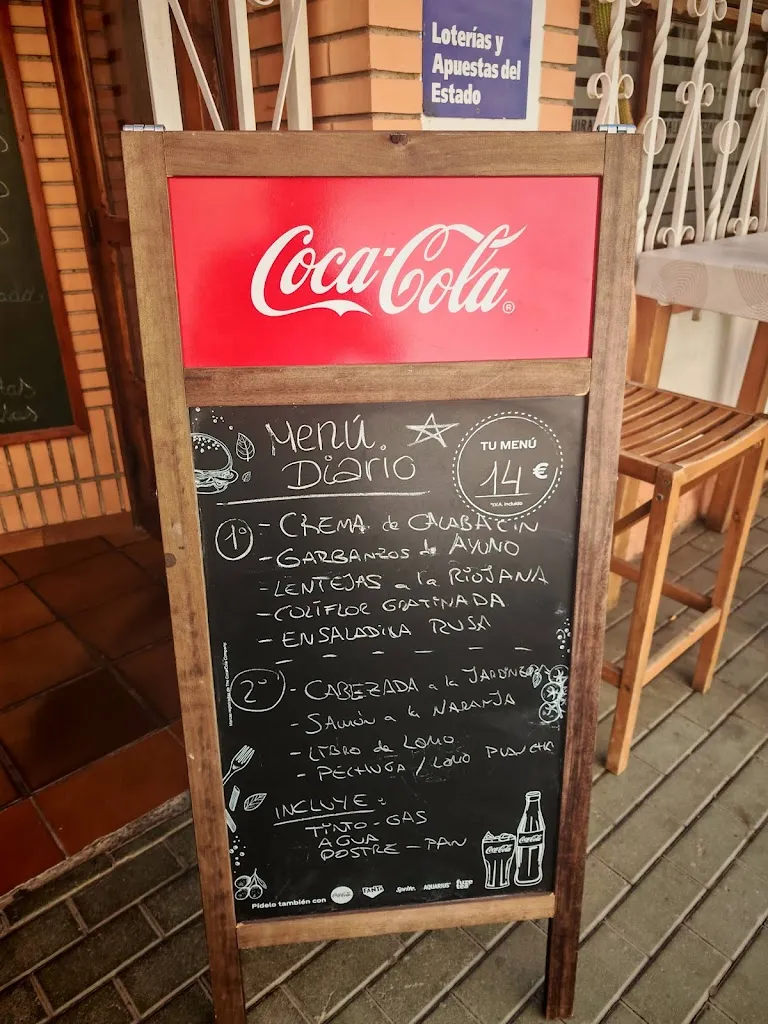 Loterías y
Apuestas del
Estado
Coca-Cola®
Menú
Diario
TU MENÚ
14 €
*IVA incluido
1º - CREMA de CALABACIN
- GARBANZOS de AYUNO
- LENTEJAS a la RIOJANA
- COLIFLOR GRATINADA
- ENSALADILLA RUSA
2º - CABEZADA a la JARDINERA
- SALMÓN a la NARANJA
- LIBRO de LOMO
- PECHUGA / LOMO PLANCHA
INCLUYE:
TINTO - GAS
AGUA
POSTRE - PAN
Coca-Cola
Coca-Cola
Pídelo también con
FANTA
Sprite
AQUARIUS